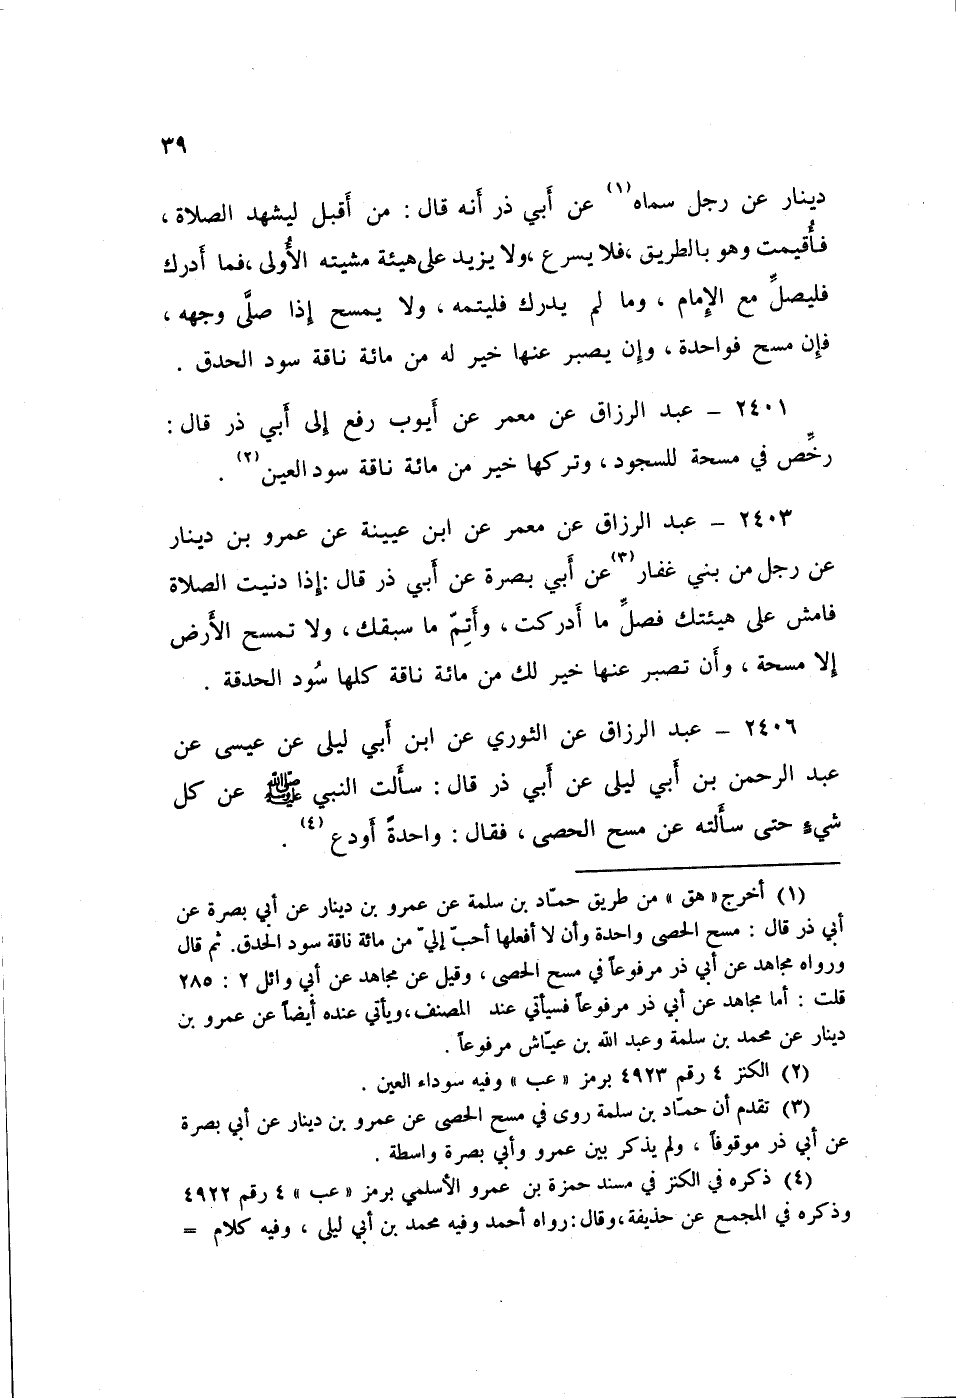 ٣٩
دينار عن رجل سماه(١) عن أَبي ذر أَنه قال : من أَقبل ليشهد الصلاة ،
فأُقيمت وهو بالطريق ،فلا يسرع ،ولا يزيد على هيئة مشيته الأُولى ،فما أَدرك
فليصلِّ مع الإِمام ، وما لم يدرك فليتمه ، ولا يمسح إِذا صلَّى وجهه ،
فإِن مسح فواحدة ، وإِن يصبر عنها خير له من مائة ناقة سود الحدق .
٢٤٠١ – عبد الرزاق عن معمر عن أَيوب رفع إِلى أَبي ذر قال :
رخِّص في مسحة للسجود ، وتركها خير من مائة ناقة سود العين(٢) .
٢٤٠٣ – عبد الرزاق عن معمر عن ابن عيينة عن عمرو بن دينار
عن رجل من بني غفار(٣) عن أَبي بصرة عن أَبي ذر قال :إِذا دنيت الصلاة
فامش على هيئتك فصلِّ ما أَدركت ، وأَتِمّ ما سبقك ، ولا تمسح الأَرض
إِلا مسحة ، وأَن تصبر عنها خير لك من مائة ناقة كلها سُود الحدقة .
٢٤٠٦ – عبد الرزاق عن الثوري عن ابن أَبي ليلى عن عيسى عن
عبد الرحمن بن أَبي ليلى عن أَبي ذر قال : سأَلت النبي ﷺ عن كل
شيءٍ حتى سأَلته عن مسح الحصى ، فقال : واحدةً أَودع (٤) .
(١) أخرج« هق » من طريق حمّاد بن سلمة عن عمرو بن دينار عن أبي بصرة عن
أبي ذر قال : مسح الحصى واحدة وأن لا أفعلها أحبّ إليّ من مائة ناقة سود الحدق. ثم قال
ورواه مجاهد عن أبي ذر مرفوعاً في مسح الحصى ، وقيل عن مجاهد عن أبي وائل ٢ : ٢٨٥
قلت : أما مجاهد عن أبي ذر مرفوعاً فسيأتي عند المصنف،ويأتي عنده أيضاً عن عمرو بن
دينار عن محمد بن سلمة وعبد الله بن عيّاش مرفوعاً .
(٢) الكنز ٤ رقم ٤٩٢٣ برمز « عب » وفيه سوداء العين .
(٣) تقدم أن حمّاد بن سلمة روى في مسح الحصى عن عمرو بن دينار عن أبي بصرة
عن أبي ذر موقوفاً ، ولم يذكر بين عمرو وأبي بصرة واسطة .
(٤) ذكره في الكنز في مسند حمزة بن عمرو الأسلمي برمز « عب » ٤ رقم ٤٩٢٢
وذكره في المجمع عن حذيفة،وقال:رواه أحمد وفيه محمد بن أبي ليلى ، وفيه كلام =